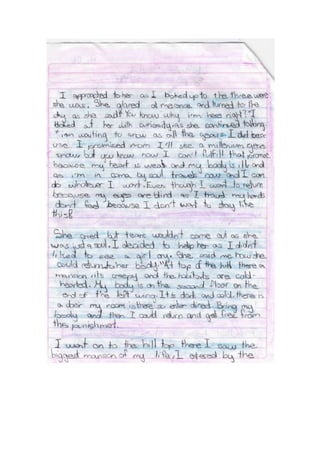 I approached to her as I looked up to the three were
she was. She glared at me once and turned to the
sky as she said "You know why I'm here right?" I
looked at her with curiosity as she continued talking
"I'm waiting to snow as all the years I did beca
use I promised mom I'll see a millenium open
snow but you know now I can't fulfill that promise
because my heart is weak and my body is ill and
as I'm in coma by soul travels now and I can
do whatever I want. Even though I want to return
because my eyes are blind as I traved my hands
don't feel because I don't want to stay like
this"
She cried but tears wouldn't come out as she
was just a soul. I decided to help her as I didn't
liked to see a girl cry. She said me how she
could return to her body "At top of the hill there is
mansion it's creepy and the habitats are cold-
hearted. My body is on the second floor on the
end of the left wing. It's dark and cold there is
a door my room is there so enter direct. Bring my
body and then I could return and get free from
this punishment.
I went on to the hill top there I saw the
biggest mansion of my life, I entered by the